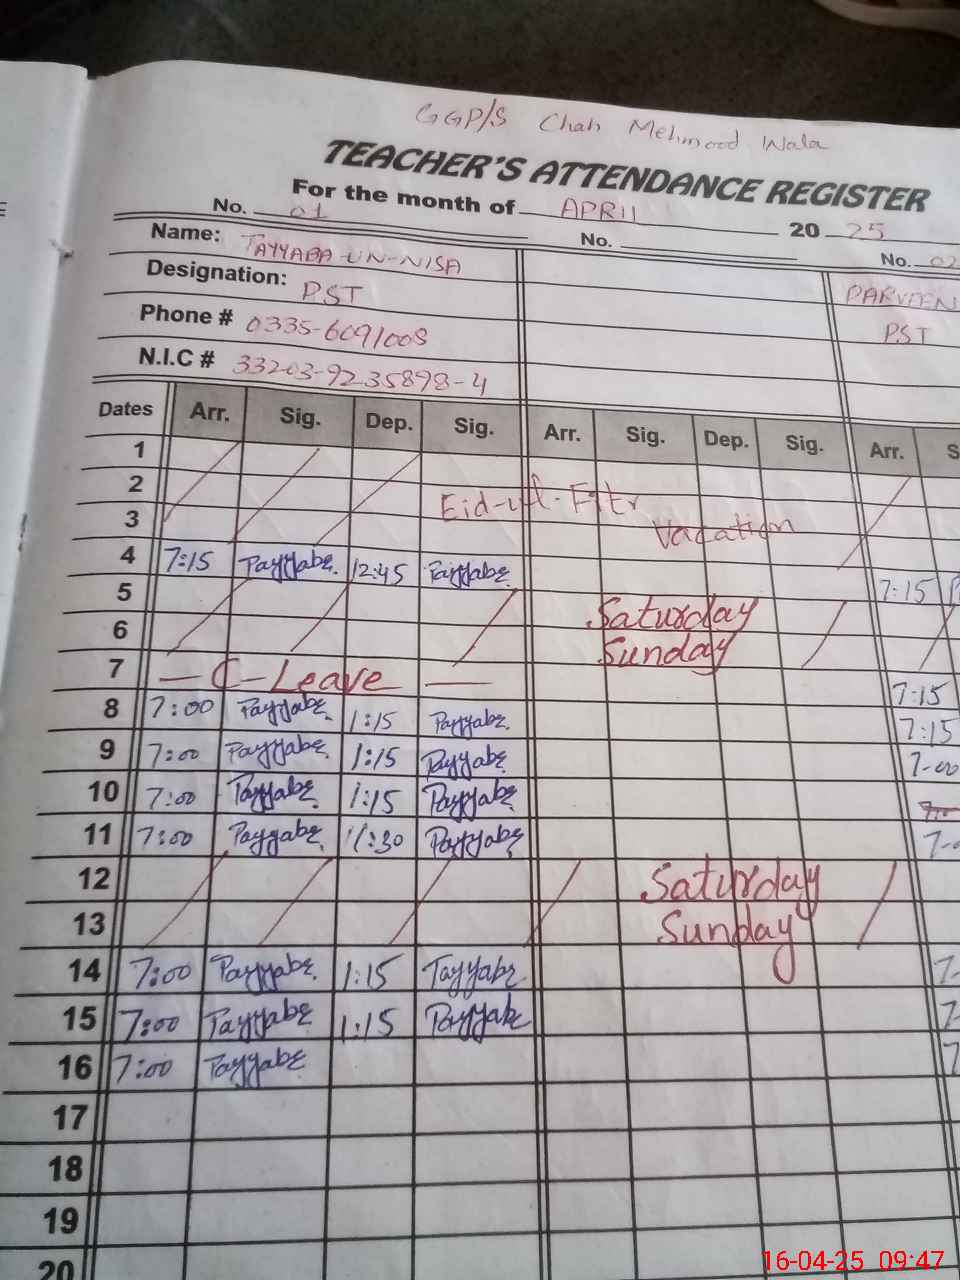 GGP/S Chah Mehmood Wala
TEACHER'S ATTENDANCE REGISTER
For the month of APRIL 2025
No. 01 No. No. 02
Name: TAYYABA-UN-NISA PARVEEN
Designation: PST PST
Phone # 0335-6091008
N.I.C # 33203-9235898-4
Dates Arr. Sig. Dep. Sig. Arr. Sig. Dep. Sig. Arr.
1
2 Eid-ul-Fitr
3 Vacation
4 7:15 Tayyaba 12:45 Tayyaba 7:15
5 Saturday
6 Sunday
7 — C-Leave — 7:15
8 7:00 Tayyaba 1:15 Tayyaba 7:15
9 7:00 Tayyaba 1:15 Tayyaba 7-00
10 7:00 Tayyaba 1:15 Tayyaba
11 7:00 Tayyaba 11:30 Tayyaba
12 Saturday
13 Sunday
14 7:00 Tayyaba 1:15 Tayyaba
15 7:00 Tayyaba 1:15 Tayyaba
16 7:00 Tayyaba
17
18
19
20
16-04-25 09:47